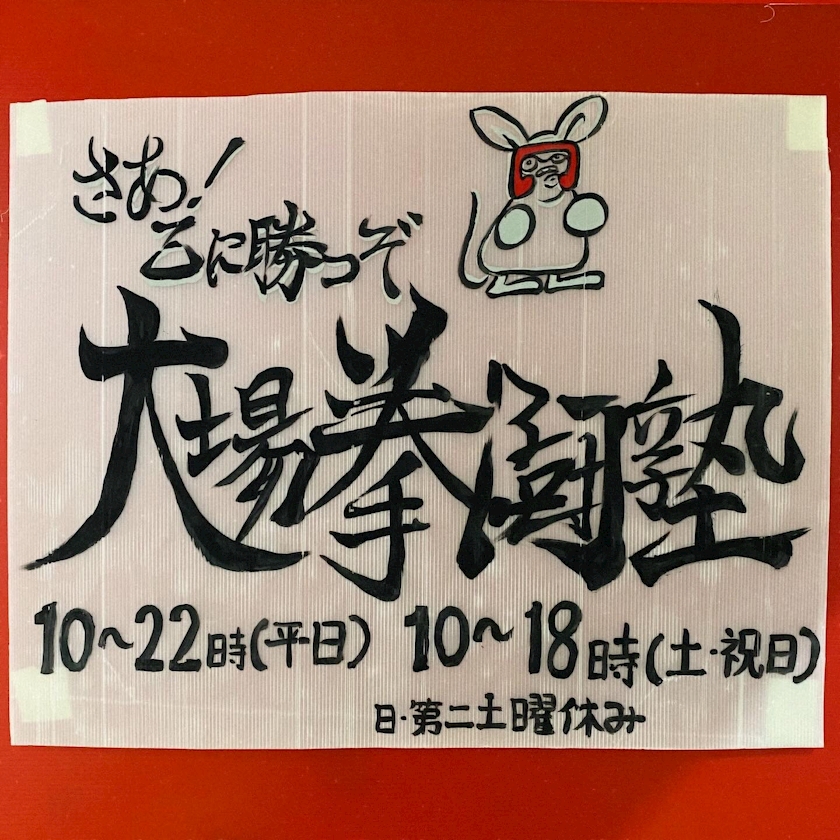 さあ！
己に勝つぞ
大場拳闘塾
10〜22時(平日) 10〜18時(土・祝日)
日・第二土曜休み